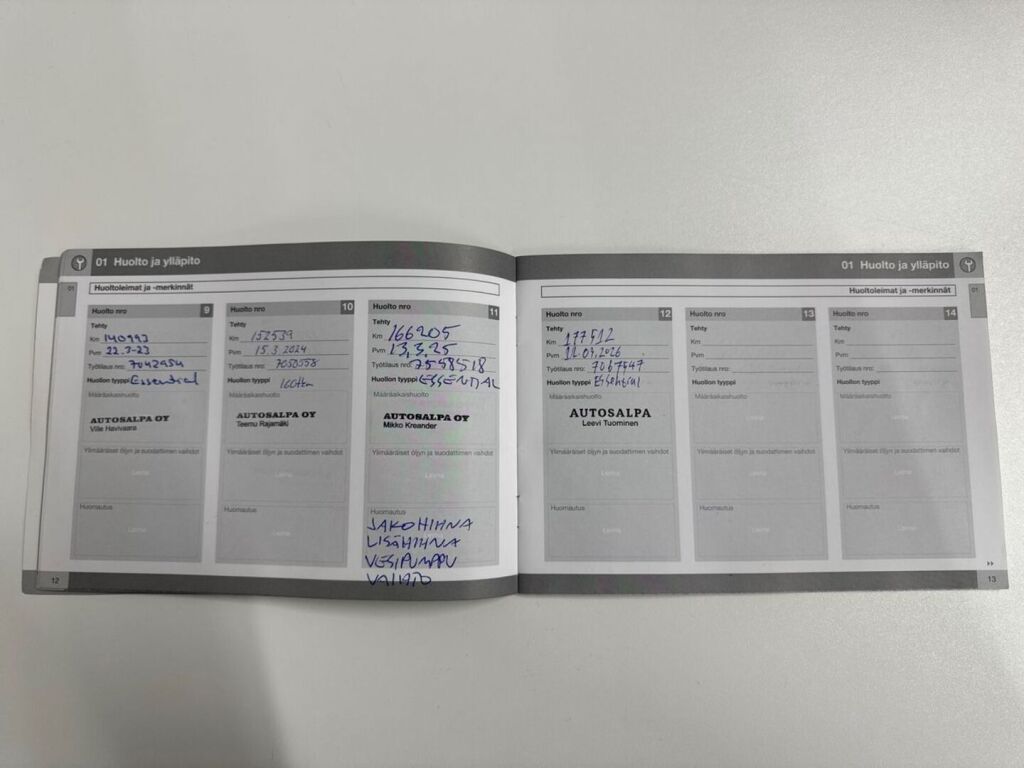 01 Huolto ja ylläpito
01
Huoltoleimat ja -merkinnät
Huolto nro 9
Tehty
Km 140993
Pvm 22.3-23
Työtilaus nro: 7042954
Huollon tyyppi Essential
Määräaikaishuolto
AUTOSALPA OY
Ville Havivaara
Ylimääräiset öljyn ja suodattimen vaihdot
Leima
Huomautus
Leima
Huolto nro 10
Tehty
Km 152539
Pvm 15.3.2024
Työtilaus nro: 7050558
Huollon tyyppi
Määräaikaishuolto
AUTOSALPA OY
Teemu Rajamäki
Ylimääräiset öljyn ja suodattimen vaihdot
Leima
Huomautus
Leima
Huolto nro 11
Tehty
Km 166205
Pvm 13.3.25
Työtilaus nro: 7558518
Huollon tyyppi ESSENTIAL
Määräaikaishuolto
AUTOSALPA OY
Mikko Kreander
Ylimääräiset öljyn ja suodattimen vaihdot
Leima
Huomautus
JAKOHIHNA
LISÄHIHNA
VESIPUMPPU
VAIHTO
12
01 Huolto ja ylläpito
Huoltoleimat ja -merkinnät
01
Huolto nro 12
Tehty
Km 177512
Pvm
Työtilaus nro: 7067447
Huollon tyyppi Essential
Määräaikaishuolto
AUTOSALPA
Leevi Tuominen
Ylimääräiset öljyn ja suodattimen vaihdot
Leima
Huomautus
Leima
Huolto nro 13
Tehty
Km
Pvm
Työtilaus nro:
Huollon tyyppi
Määräaikaishuolto
Leima
Ylimääräiset öljyn ja suodattimen vaihdot
Leima
Huomautus
Leima
Huolto nro 14
Tehty
Km
Pvm
Työtilaus nro:
Huollon tyyppi
Määräaikaishuolto
Leima
Ylimääräiset öljyn ja suodattimen vaihdot
Leima
Huomautus
Leima
13